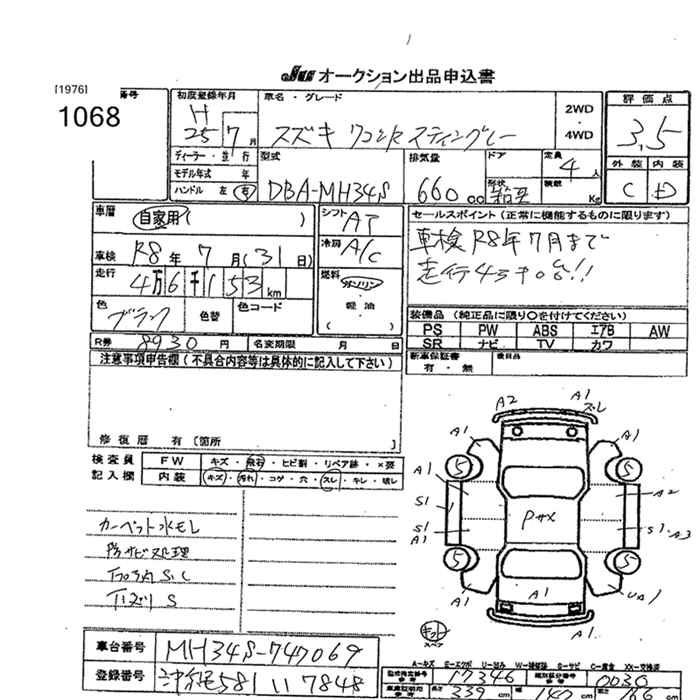 JU オークション出品申込書
[1976]
番号
1068
初度登録年月
H
25年 7月
車名・グレード
スズキ ワゴンR スティングレー
2WD
・
4WD
評価点
3.5
外装 内装
C D
ディーラー・並行
モデル年式 年
ハンドル 左 右
型式
DBA-MH34S
排気量
660 cc
ドア
形状
定員
4人
積載 Kg
車歴
自家用 ( )
シフト
AT
車検 R8年 7月(31日)
冷房
A/C
走行
4万6千153 km
燃料
ガソリン
・
軽油
( )
色
ブラック
色替
色コード
R券 8930円
名変期限 月 日
セールスポイント(正常に機能するものに限ります)
車検R8年7月まで
走行4万キロ台!!
装備品(純正品に限り○を付けてください)
PS PW ABS エアB AW
SR ナビ TV カワ
新車保証書
有・無
後日品
注意事項申告欄(不具合内容等は具体的に記入して下さい)
修復歴 有〔箇所 〕
検査員
記入欄
FW キズ・飛石・ヒビ割・リペア跡・×要
内装 キズ・汚れ・コゲ・穴・スレ・キレ・破レ
カーペット水モレ
防サビ処理
下回りS
A2 A1 スレ
A1 A1
5 5
A1 A2
S1 S1 A3
S1
A1
Pサス
5 5
A1 A1 A1
スペア
A1
A-キズ E-エクボ U-凹み W-補修跡 S-サビ C-腐食 XX-交換済
車台番号 MH34S-747069
登録番号 沖縄581 い 7848
型式指定番号 17346
類別区分番号 0030
車両寸法 長さ 339cm 幅 147cm 高さ 166